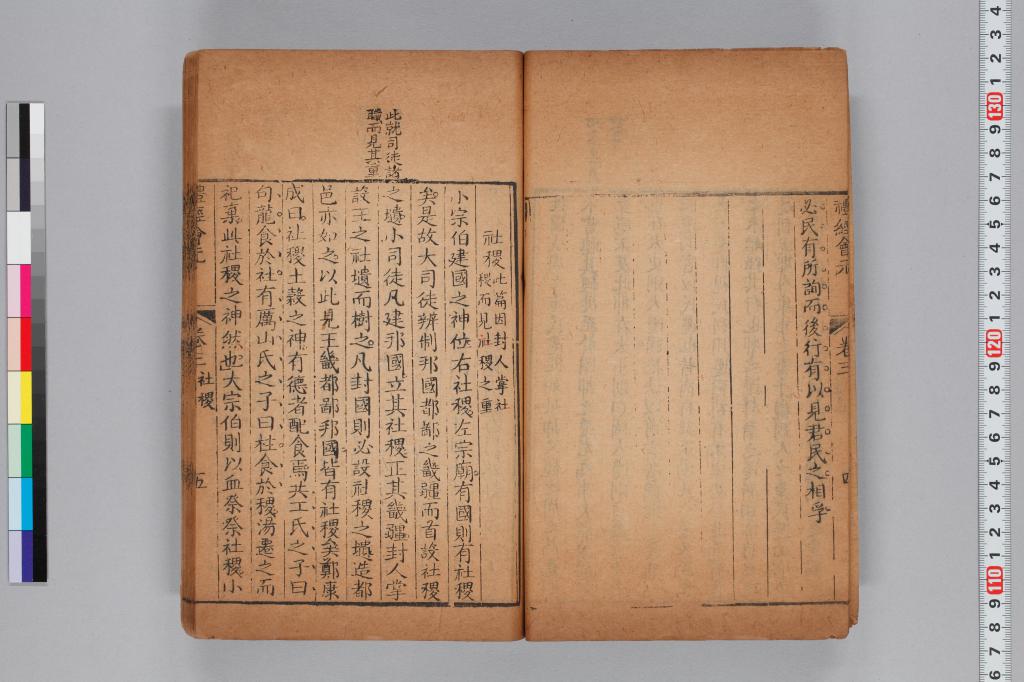 禮經會元
卷三
四
必民有所詢而後行有以見君民之相孚
社稷此篇因封人掌社
稷而見社稷之重
小宗伯建國之神位右社稷左宗廟有國則有社稷
矣是故大司徒辨制邦國都鄙之畿疆而首設社稷
之壝小司徒凡建邦國立其社稷正其畿疆封人掌
設王之社壝而樹之凡封國則必設社稷之壝造都
邑亦如之以此見王畿都鄙邦國皆有社稷矣鄭康
成曰社稷土穀之神有德者配食焉共工氏之子曰
句龍食於社有厲山氏之子曰柱食於稷湯遷之而
祀棄此社稷之神然也大宗伯則以血祭祭社稷小
此就司徒諸
職而見其重
禮經會元
卷三
社稷
五